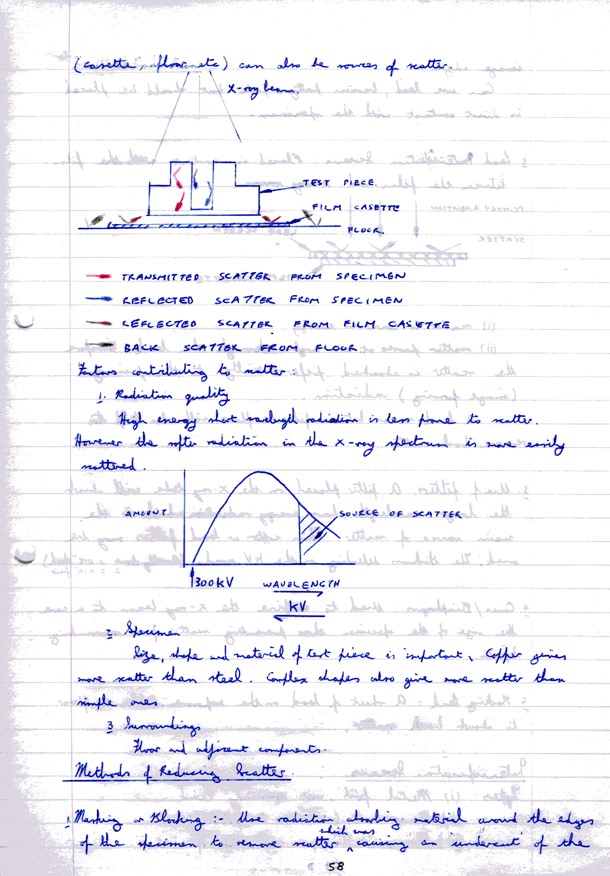 (casette, floor etc) can also be sources of scatter.
X-ray beam.
TEST PIECE
FILM CASETTE
FLOOR.
TRANSMITTED SCATTER FROM SPECIMEN
REFLECTED SCATTER FROM SPECIMEN
REFLECTED SCATTER FROM FILM CASETTE
BACK SCATTER FROM FLOUR
Factors contributing to scatter:
1. Radiation quality
High energy short wavelength radiation is less prone to scatter.
However the softer radiation in the X-ray spectrum is more easily
scattered.
AMOUNT
SOURCE OF SCATTER
300KV
WAVELENGTH
KV
2 Specimen
Size, shape and material of test piece is important, Copper gives
more scatter than steel. Complex shapes also give more scatter than
simple ones
3 Surroundings
Floor and adjacent components.
Methods of Reducing Scatter.
1. Masking or Blocking :- Use radiation absorbing material around the edges
which was
of the specimen to remove scatter causing an undercut of the
58